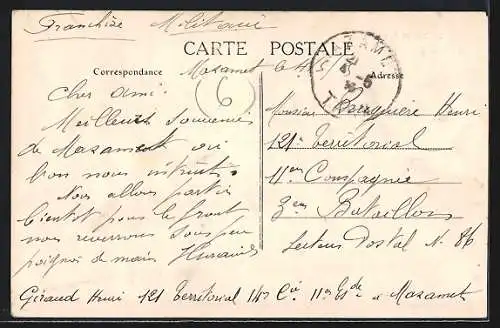 Franchise Militaire
CARTE POSTALE
Correspondance
Adresse
Mazamet le
Cher ami
Meilleurs souvenirs
de Mazamet ou
bon nous
Nous allons partir
bientôt pour le front
nous reverrons sous peu
poignée de mains
6
Monsieur Henri
121e Territorial
11em Compagnie
3em Bataillon
Secteur Postal N. 86
Géraud Henri 121 Territorial 14e Cie 11e de Mazamet